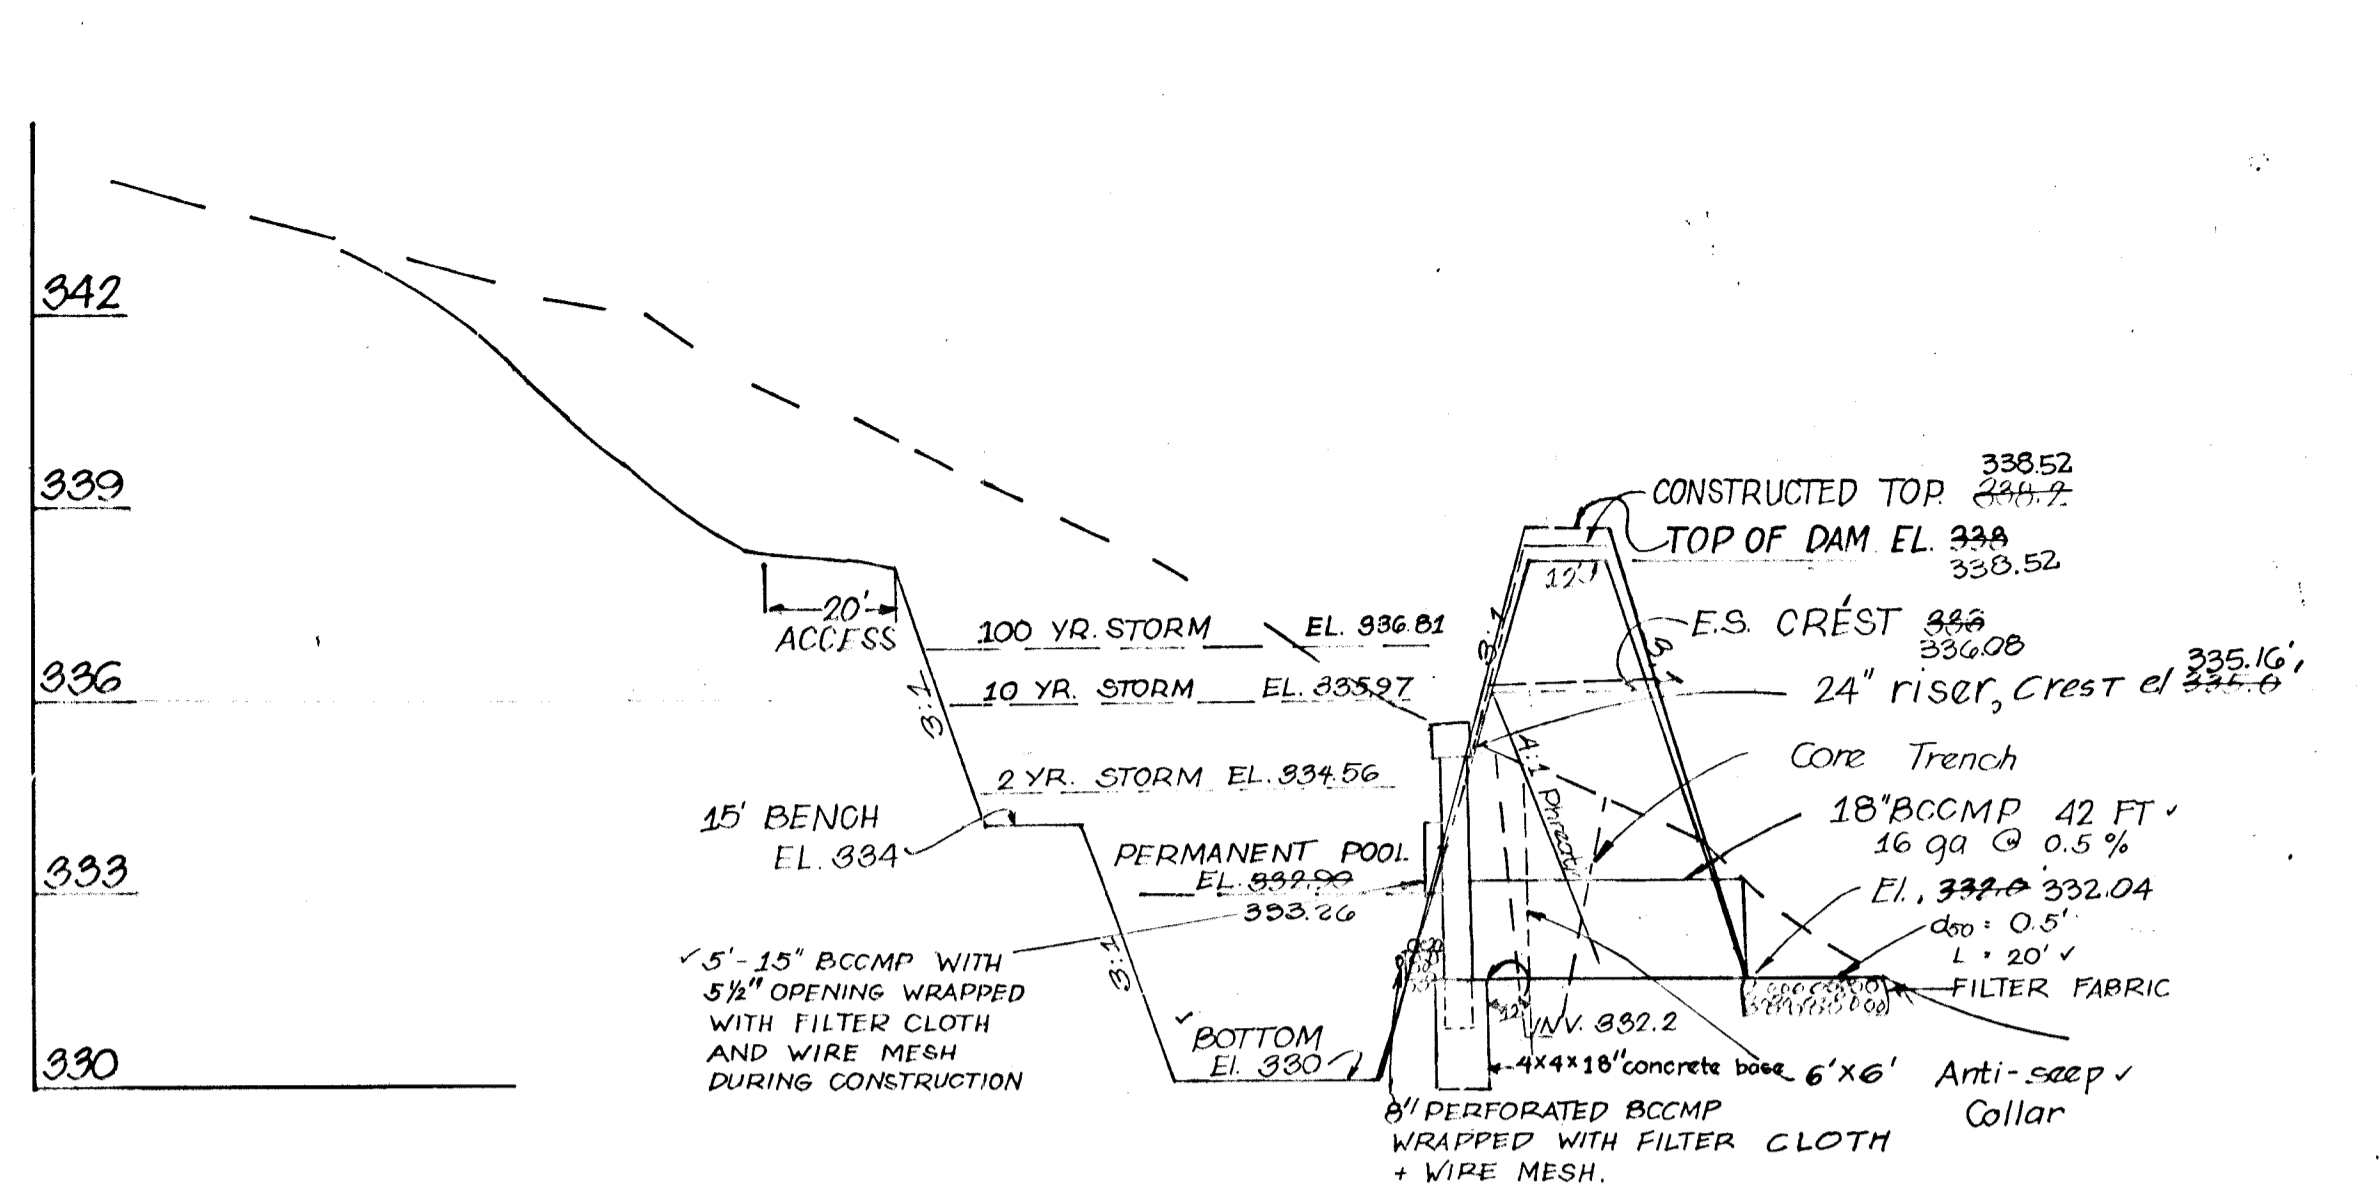 342
339
336
333
330
20'
ACCESS
3:1
15' BENCH
EL. 334
3:1
100 YR. STORM EL. 336.81
10 YR. STORM EL. 335.97
2 YR. STORM EL. 334.56
PERMANENT POOL
EL. 332.90
333.26
✓ 5'-15" BCCMP WITH
5½" OPENING WRAPPED
WITH FILTER CLOTH
AND WIRE MESH
DURING CONSTRUCTION
✓ BOTTOM
El. 330
338.52
CONSTRUCTED TOP. 338.9
TOP OF DAM EL. 338
338.52
12'
3:1
3:1
E.S. CREST 336
336.08
335.16',
24" riser, Crest el 335.0
4:1 Phreatic
Core Trench
18" BCCMP 42 FT ✓
16 ga @ 0.5 %
El. 332.0 332.04
d50 = 0.5'
L = 20' ✓
FILTER FABRIC
12"
INV. 332.2
4x4x18" concrete base 6'x6' Anti-seep ✓
Collar
8" PERFORATED BCCMP
WRAPPED WITH FILTER CLOTH
+ WIRE MESH.